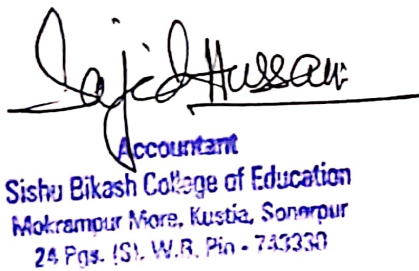 Sajid Hussain
Accountant
Sishu Bikash College of Education
Mokrampur More, Kustia, Sonarpur
24 Pgs. (S), W.B. Pin - 743330